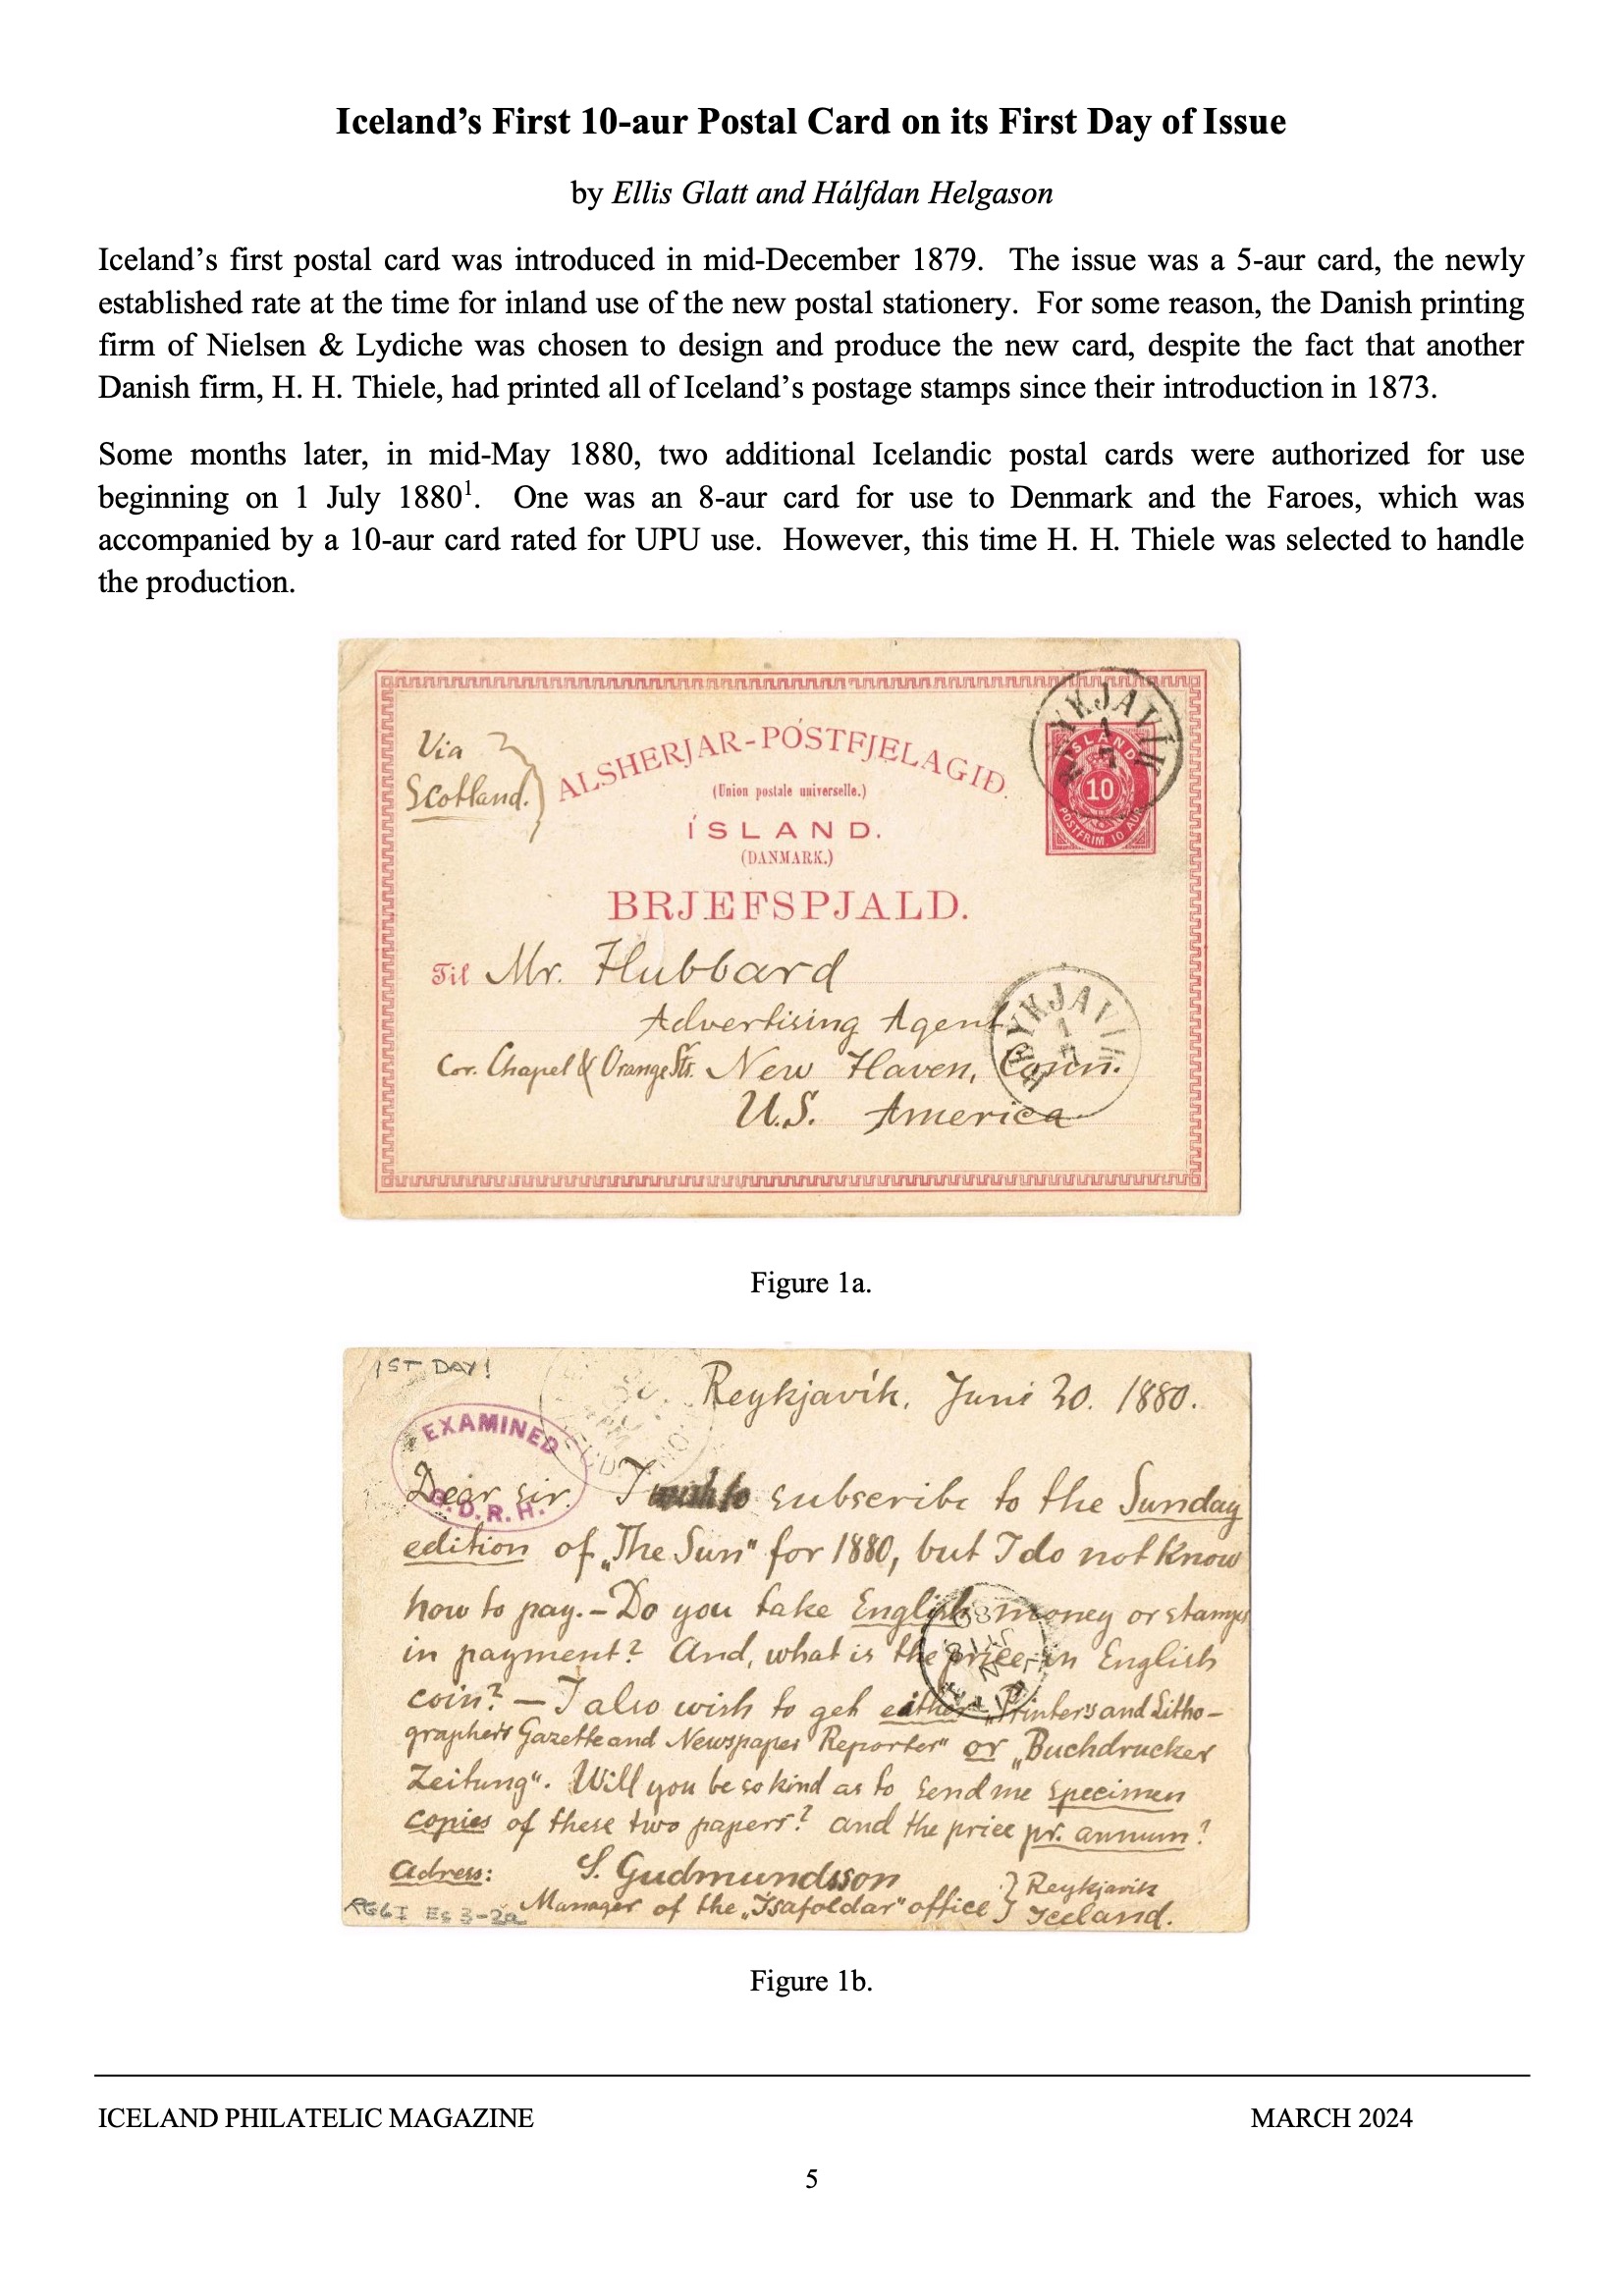 Iceland’s First 10-aur Postal Card on its First Day of Issue
by Ellis Glatt and Hálfdan Helgason
Iceland’s first postal card was introduced in mid-December 1879. The issue was a 5-aur card, the newly
established rate at the time for inland use of the new postal stationery. For some reason, the Danish printing
firm of Nielsen & Lydiche was chosen to design and produce the new card, despite the fact that another
Danish firm, H. H. Thiele, had printed all of Iceland’s postage stamps since their introduction in 1873.
Some months later, in mid-May 1880, two additional Icelandic postal cards were authorized for use
beginning on 1 July 1880¹. One was an 8-aur card for use to Denmark and the Faroes, which was
accompanied by a 10-aur card rated for UPU use. However, this time H. H. Thiele was selected to handle
the production.
Via
Scotland.
ALSHERJAR-PÓSTFJELAGIÐ.
(Union postale universelle.)
ÍSLAND.
(DANMARK.)
BRJEFSPJALD.
YKJAVIK
1
7
ISLAND
10
POSTFRIM. 10 AUR
Til Mr. Hubbard
Advertising Agent
Cor. Chapel & Orange Sts. New Haven, Conn.
U.S. America
YKJAVIK
1
7
Figure 1a.
1ST DAY!
Reykjavík, Juni 30. 1880.
EXAMINED
G.D.R.H.
Dear sir. I wish to subscribe to the Sunday
edition of „The Sun" for 1880, but I do not know
how to pay. – Do you take English money or stamps
in payment? And, what is the price in English
coin? – I also wish to get either „Printers and Litho-
graphers Gazette and Newspaper Reporter" or „Buchdrucker
Zeitung". Will you be so kind as to send me specimen
copies of these two papers? and the price pr. annum?
Adress: S. Gudmundsson
Manager of the „Ísafoldar" office } Reykjavík
Iceland.
Figure 1b.
ICELAND PHILATELIC MAGAZINE MARCH 2024
5